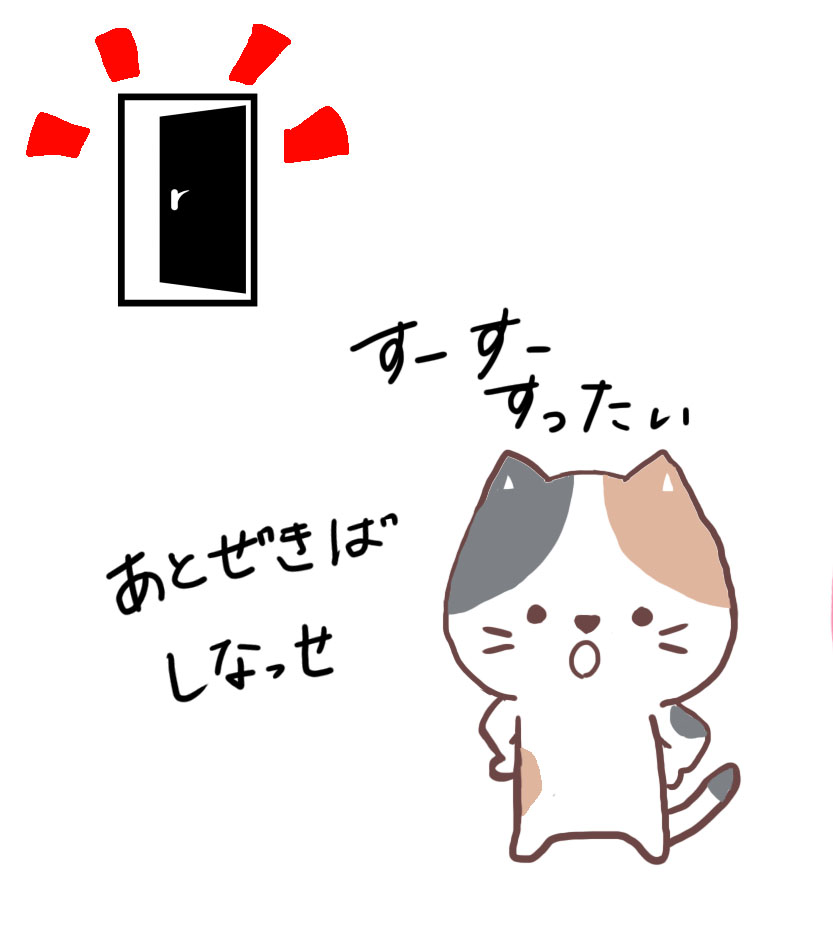 すーすー
すったい
あとぜきば
しなっせ